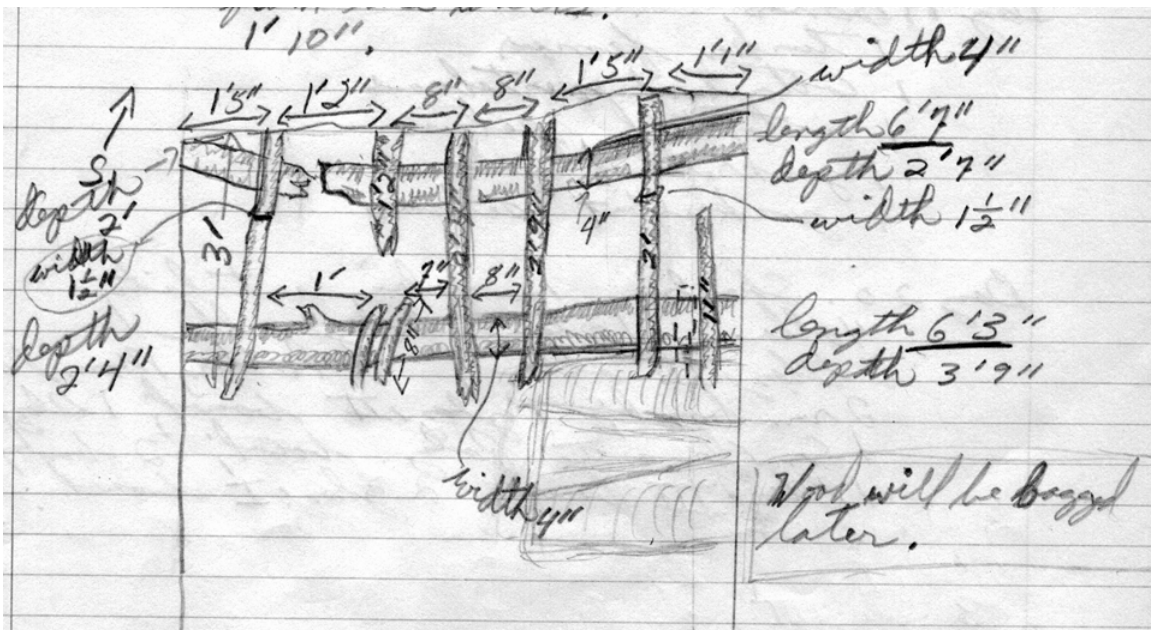 1' 10".
1'5" 1'2" 8" 8" 1'5" 1'1"
width 4"
length 6'7"
depth 2'7"
width 1½"
S
depth
2'
width
1½"
3'
12"
2'
2'9"
2'
4"
depth
2'4"
1'
7"
8"
8"
11"
length 6'3"
depth 3'9"
width 4"
Wood will be bagged
later.